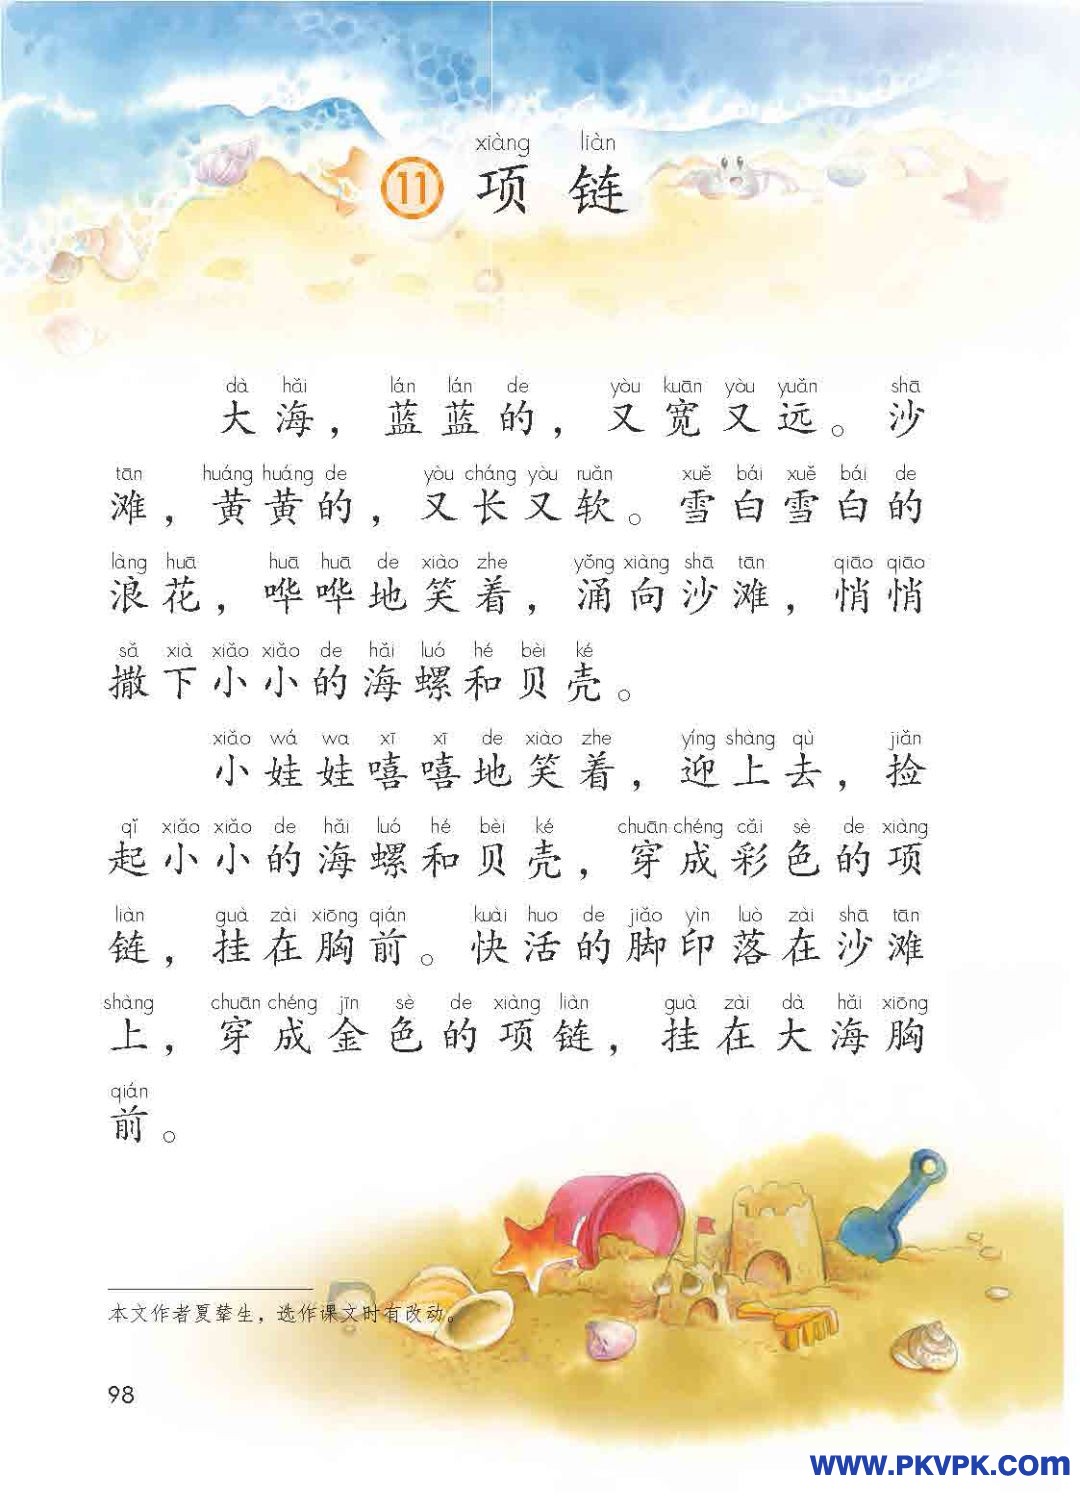 xiàng liàn
11 项链
dà hǎi lán lán de yòu kuān yòu yuǎn shā
大海，蓝蓝的，又宽又远。沙
tān huáng huáng de yòu cháng yòu ruǎn xuě bái xuě bái de
滩，黄黄的，又长又软。雪白雪白的
làng huā huā huā de xiào zhe yǒng xiàng shā tān qiāo qiāo
浪花，哗哗地笑着，涌向沙滩，悄悄
sǎ xià xiǎo xiǎo de hǎi luó hé bèi ké
撒下小小的海螺和贝壳。
xiǎo wá wa xī xī de xiào zhe yíng shàng qù jiǎn
小娃娃嘻嘻地笑着，迎上去，捡
qǐ xiǎo xiǎo de hǎi luó hé bèi ké chuān chéng cǎi sè de xiàng
起小小的海螺和贝壳，穿成彩色的项
liàn guà zài xiōng qián kuài huo de jiǎo yìn luò zài shā tān
链，挂在胸前。快活的脚印落在沙滩
shàng chuān chéng jīn sè de xiàng liàn guà zài dà hǎi xiōng
上，穿成金色的项链，挂在大海胸
qián
前。
本文作者夏辇生，选作课文时有改动。
98
www.PKVPK.com